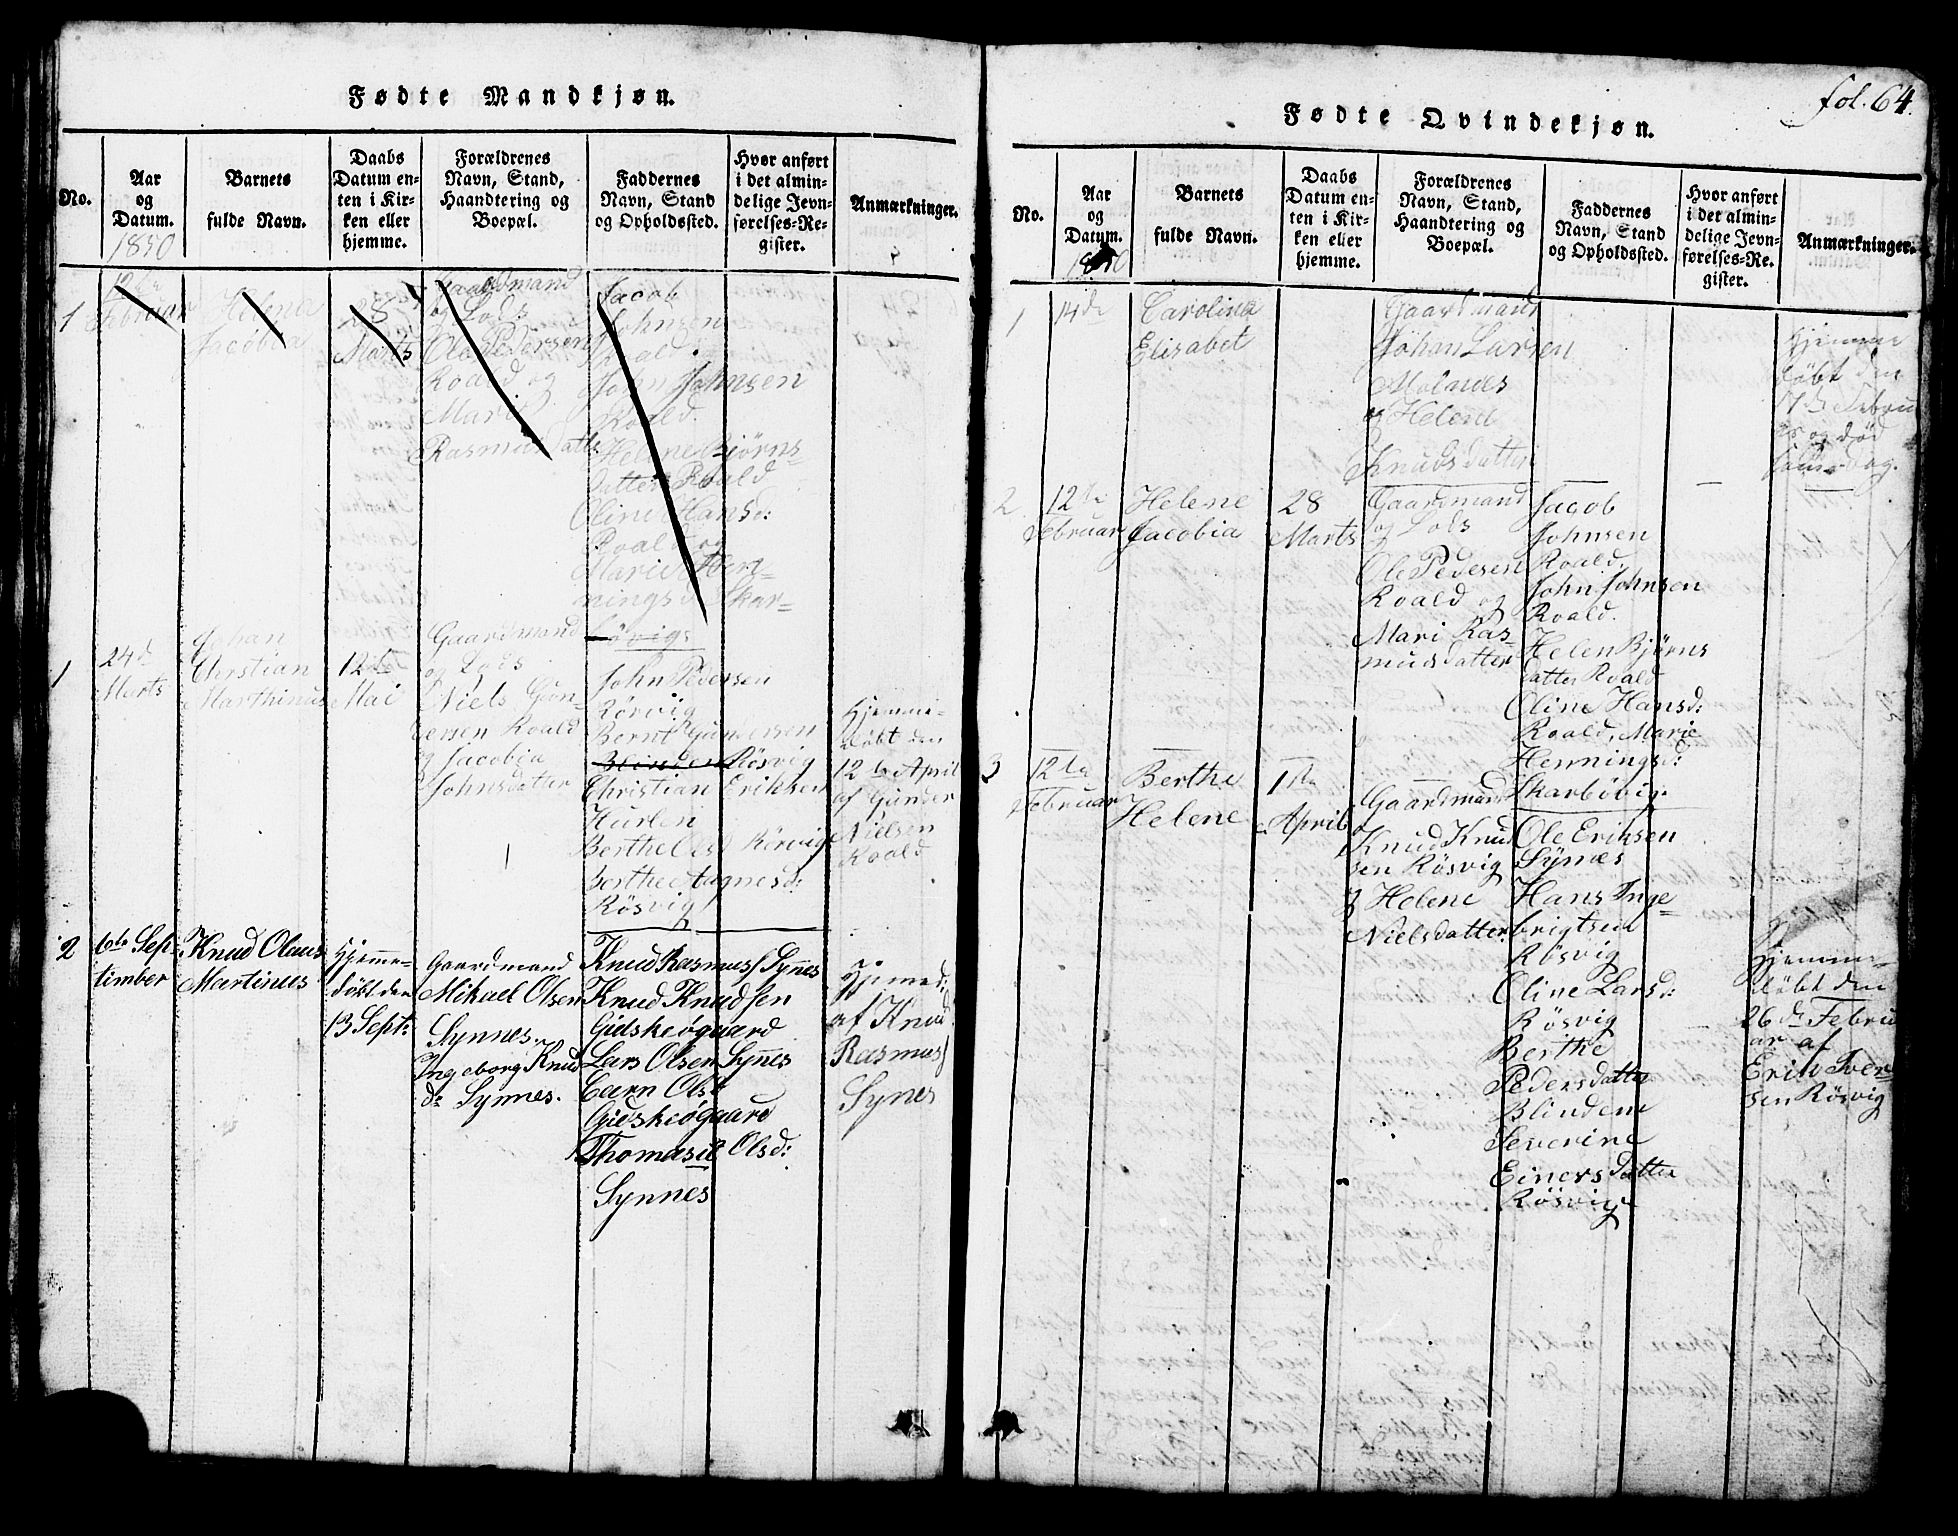 Fødte Mandkjøn.
No.
Aar
og
Datum.
1850
Barnets
fulde Navn.
Daabs
Datum en-
ten i Kir-
ken eller
hjemme.
Forældrenes
Navn, Stand,
Haandtering og
Boepæl.
Faddernes
Navn, Stand
og Opholdssted.
Hvor anført
i det almin-
delige Jevn-
førelses-Re-
gister.
Anmærkninger.
1
12te
Februar
Helena
Jacobia
28
Marts
Gaardmand
og Lods
Ole Pedersen
Roald og
Mari
Rasmusdatter
Jacob
Johnsen
Roald
John Johnsen
Roald.
Helene Bjørns-
datter Roald
Oline Hansd:
Roald og
Marie Hen-
ningsd: Skar-
bövig
1
24d
Marts
Johan
Christian
Marthinus
12te
Mai
Gaardmand
og Lods
Niels Gun-
dersen Roald
og Jacobia
Johnsdatter
John Pedersen
Rörvig
Bernt Gundersen
Blinden Rösvig
Christian Eriksen
Hurlen
Berthe Olsd Rörvig
Berthe Aagnesd:
Rösvig
Hjemme-
döbt den
12te April
af Gunder
Nielsen
Roald
2
6te Sep-
timber
Knud Olaus
Martinus
Hjemme-
döbt den
13 Sept:
Gaardmand
Mikael Olsen
Synnes.
Ingeborg Knud
d: Synnes.
Knud Rasmuss Synnes
Knud Knudsen
Gidskeøgaard
Lars Olsen Synnes
Caren Olsd
Gidskeøgaard
Thomasie Olsd:
Synnes
Hjemed:
af Knud
Rasmuss
Synes
fol. 64.
Fødte Qvindekjøn.
No.
Aar
og
Datum.
1850
Barnets
fulde Navn.
Daabs
Datum en-
ten i Kir-
ken eller
hjemme.
Forældrenes
Navn, Stand,
Haandtering og
Boepæl.
Faddernes
Navn, Stand
og Opholdssted.
Hvor anført
i det almin-
delige Jevn-
førelses-Re-
gister.
Anmærkninger.
1
14de
Carolina
Elisabet
Gaardmand
Johan Larsen
Molnæs
og Helene
Knudsdatter
Hjemme
döbt den
17de Febru
ar og död
samedag.
2
12te
Februar
Helene
Jacobia
28
Marts
Gaardsmand
og Lods
Ole Pedesen
Roald og
Mari Ras-
musdatter
Jacob
Johnsen
Roald.
John Johnsen
Roald.
Helen Bjørns
datter Roald
Oline Hansd:
Roald, Marie
Henningsd:
Skarbövig.
3
12te
Februar
Berthe
Helene
1te
April
Gaardmand
Knud Knud
sen Rösvig
og Helene
Nielsdatter
Ole Eriksen
Synnes
Hans Inge-
brigtsen
Rösvig
Oline Larsd:
Rösvig
Berthe
Pedersdatter
Blindem
Severine
Einersdatter
Rösvig
Hjemme-
döbt den
26de Febru
ar af
Erik Iver-
sen Rösvig